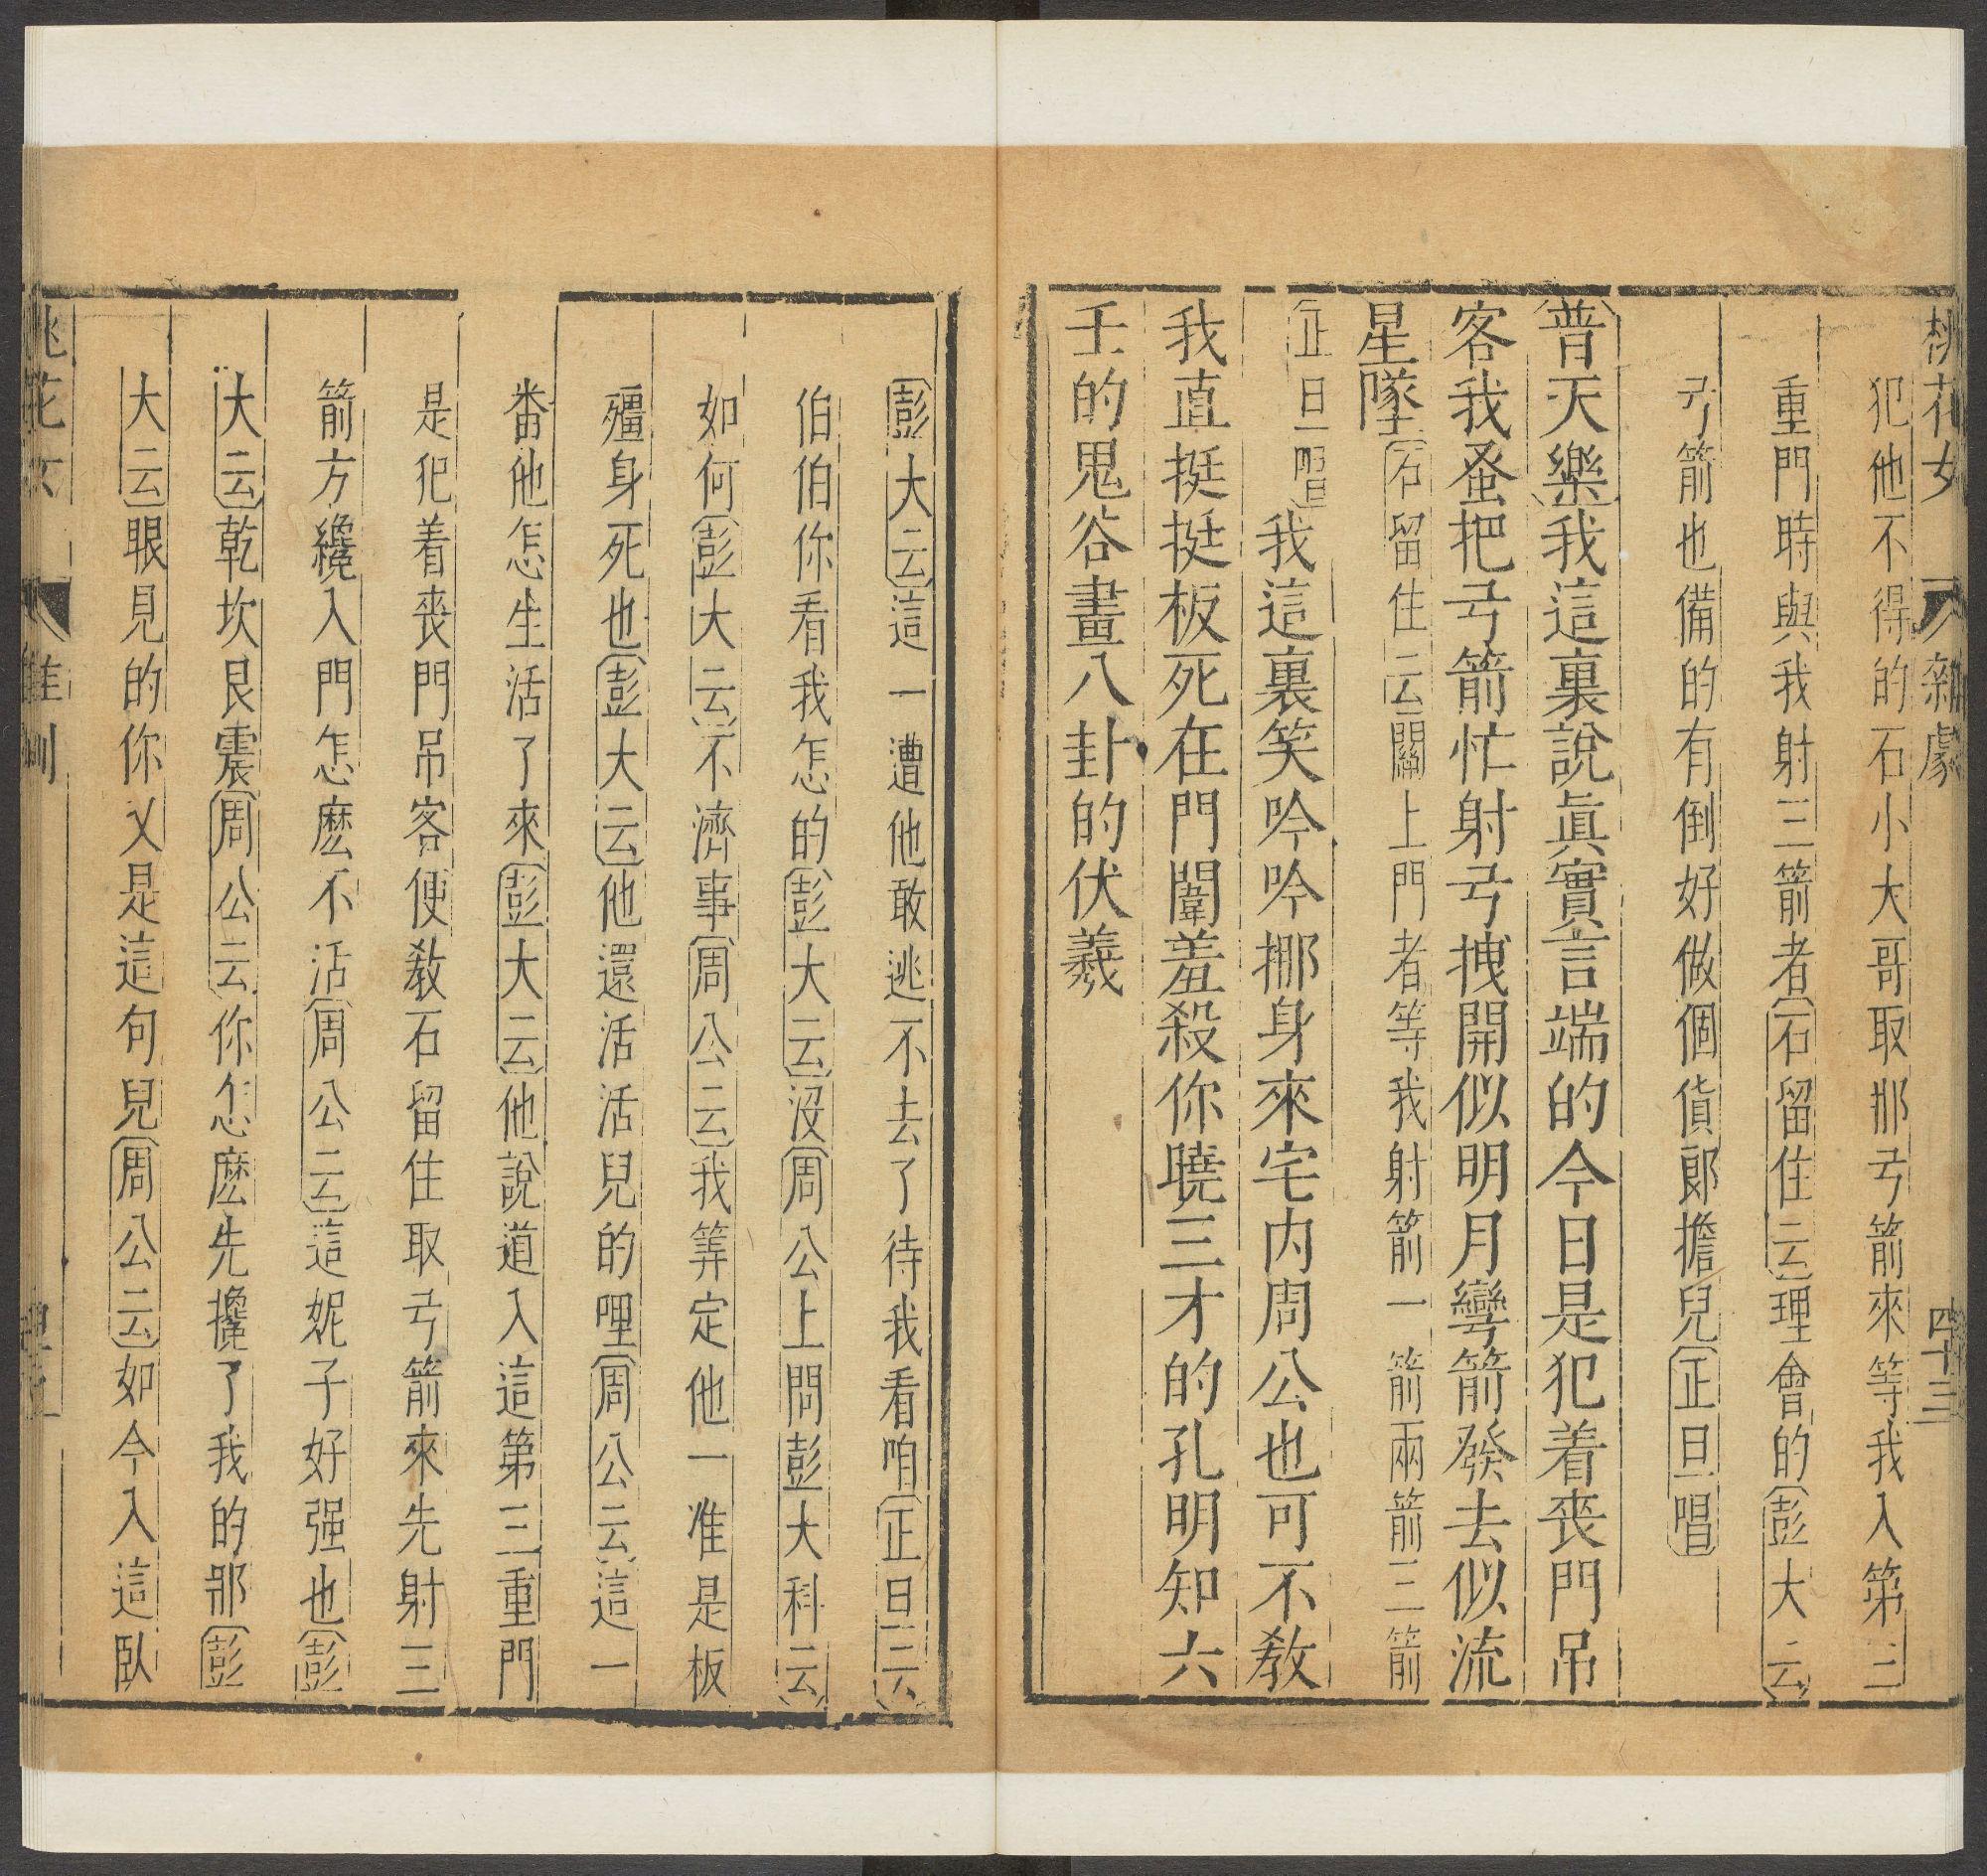 桃花女 雜劇 四十三
犯他不得的石小大哥取那弓箭來等我入第三
重門時與我射三箭者石留住云理會的彭大云
弓箭也備的有倒好做個貨郞擔兒正旦唱
普天樂我這裏說眞實言端的今日是犯着喪門吊
客我蚤把弓箭忙射弓拽開似明月彎箭發去似流
星墜石留住云關上門者等我射箭一箭兩箭三箭
正旦唱我這裏笑吟吟挪身來宅内周公也可不教
我直挺挺板死在門闈羞殺你曉三才的孔明知六
壬的鬼谷畫八卦的伏羲
彭大云這一遭他敢逃不去了待我看咱正旦云
伯伯你看我怎的彭大云沒周公上問彭大科云
如何彭大云不濟事周公云我筭定他一准是板
殭身死也彭大云他還活活兒的哩周公云這一
番他怎生活了來彭大云他說道入這第三重門
是犯着喪門吊客便教石留住取弓箭來先射三
箭方纔入門怎麽不活周公云這妮子好强也彭
大云乾坎艮震周公云你怎麽先攙了我的那彭
大云眼見的你又是這句兒周公云如今入這臥
桃花女 雜劇